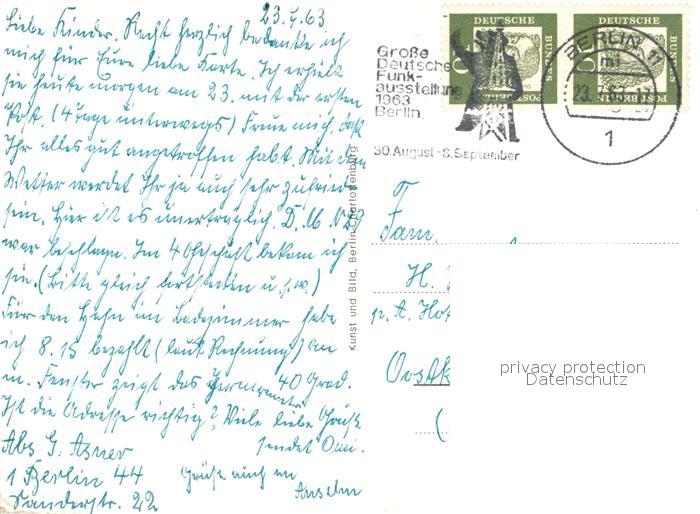 23.7.63
Liebe Kinder. Recht herzlich bedanke ich
mich für Eure liebe Karte. Ich erhielt
sie heute morgen am 23. mit der ersten
Post. (4 Tage unterwegs) Freue mich, daß
Ihr alles gut angetroffen habt. Mit dem
Wetter werdet Ihr ja auch sehr zufrieden
sein. Hier ist es unerträglich. D.
war beschlagn. Im 4 bekam ich
sie. (Bitte gleich u.s.w.)
Für den Hahn im Badezimmer habe
ich 8.15 bezahlt (laut Rechnung) An
m. Fenster zeigt das Thermometer 40 Grad.
Ist die Adresse richtig? Viele liebe Grüße
sendet Omi.
Abs G. Asner
1 Berlin 44
Sanderstr. 22
Grüße auch an
Anselm
Kunst und Bild, Berlin-Charlottenburg
Große
Deutsche
Funk-
ausstellung
1963
Berlin
30. August - 8. September
DEUTSCHE
BUNDES
POST BERLIN
DEUTSCHE
BUNDES
POST BERLIN
BERLIN 11
23.7.63-17
1
Fam.
H.
p. A. Hot
Oostk
(
privacy protection
Datenschutz